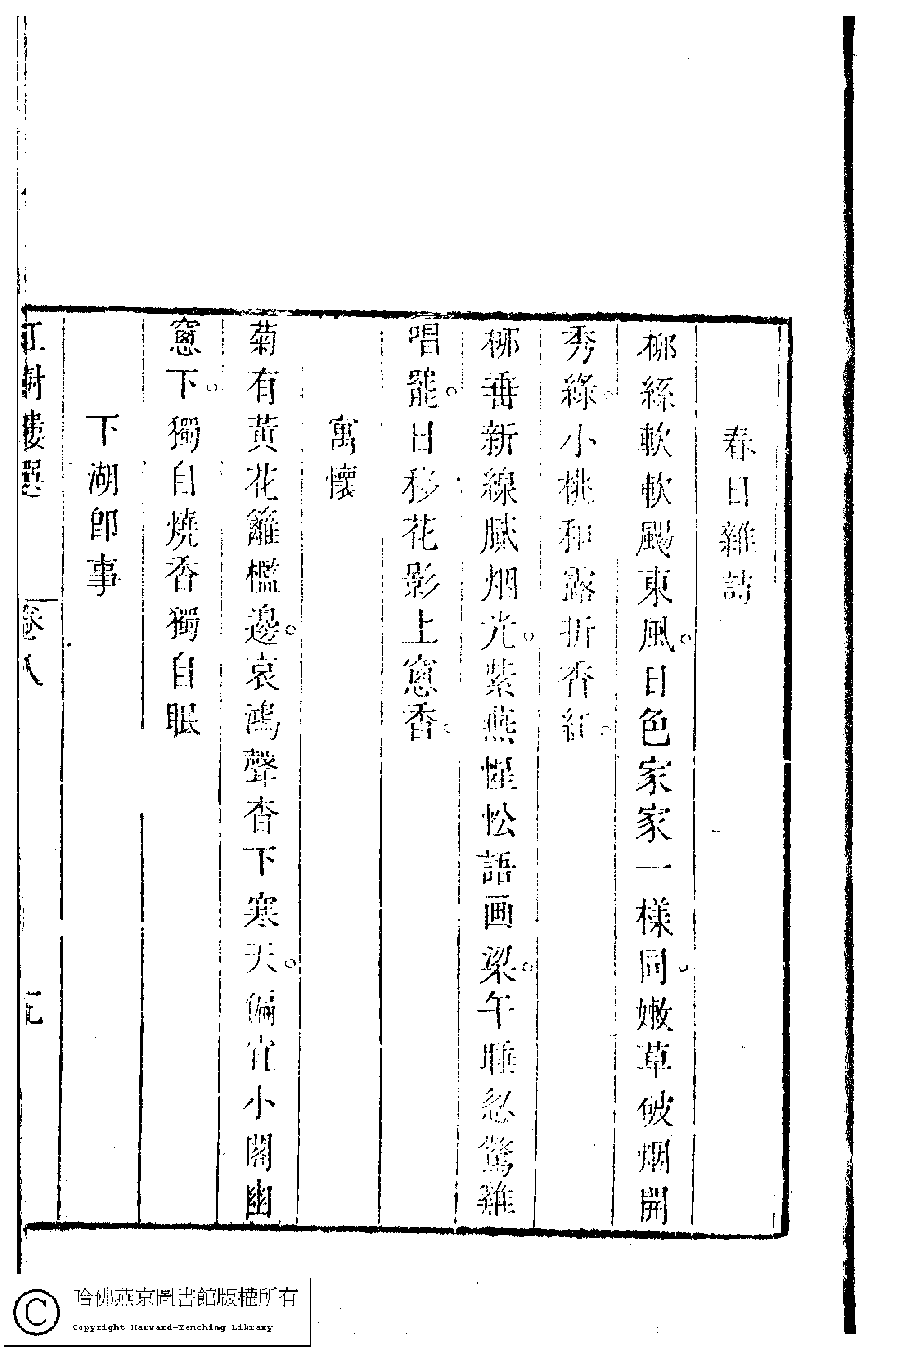 春日雜詩
柳絲軟軟颺東風。日色家家一樣同。嫩草破烟開
秀綠。小桃和露折香紅。
柳垂新線膩烟光。紫燕惺忪語画梁。午睡忽驚雞
唱罷。日移花影上窻香。
寓懷
菊有黃花籬檻邊。哀鴻聲杳下寒天。偏宜小閣幽
窻下。獨自燒香獨自眠
下湖卽事
紅樹樓選
卷八
哈佛燕京圖書館版權所有
Copyright Harvard-Yenching Library